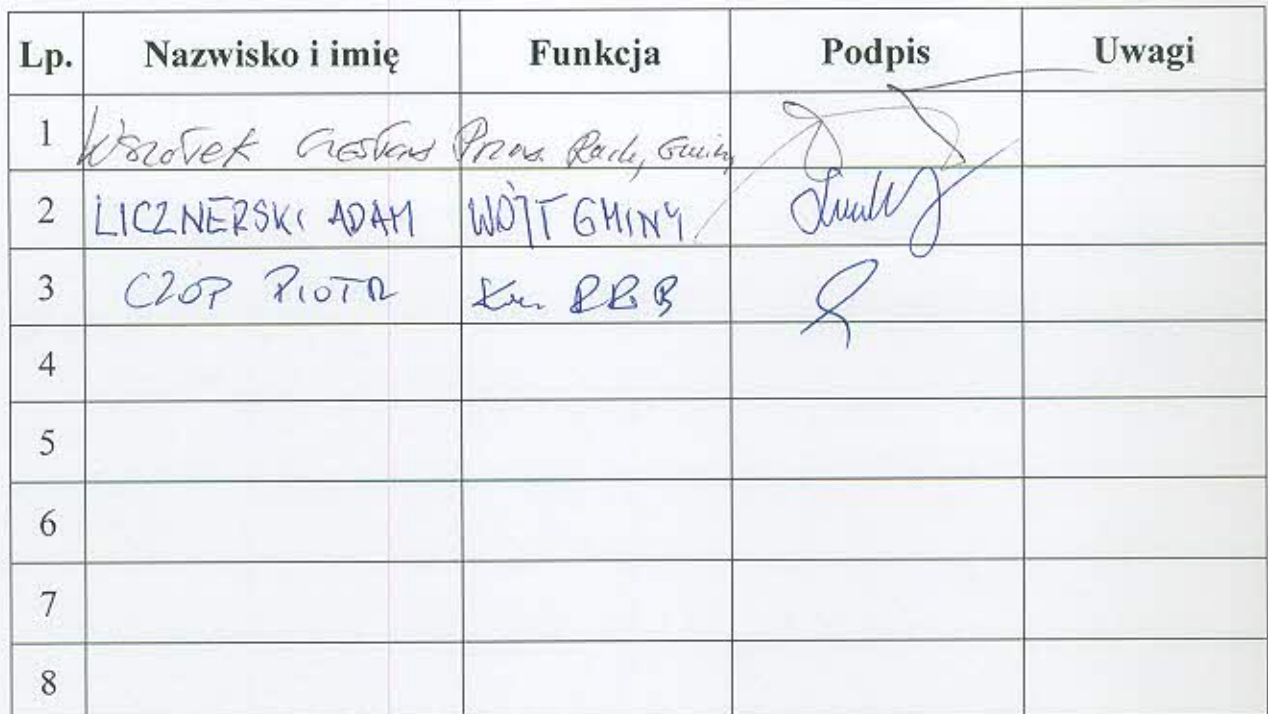 Lp. Nazwisko i imię Funkcja Podpis Uwagi
1 Wszołek Czesław Przew. Rady Gminy
2 LICZNERSKI ADAM WÓJT GMINY
3 CZOP PIOTR
4
5
6
7
8